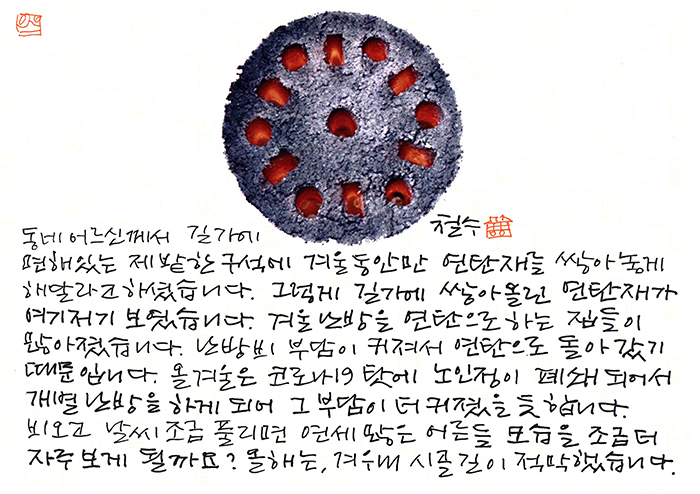 철수
동네 어르신께서 길가에
면해있는 제 밭 한 구석에 겨울동안만 연탄재를 쌓아놓게
해달라고 하셨습니다. 그렇게 길가에 쌓아올린 연탄재가
여기저기 보였습니다. 겨울난방을 연탄으로 하는 집들이
많아졌습니다. 난방비 부담이 커져서 연탄으로 돌아갔기
때문입니다. 올겨울은 코로나19 탓에 노인정이 폐쇄 되어서
개별난방을 하게 되어 그 부담이 더 커졌을 듯 합니다.
비오고 날씨 조금 풀리면 연세 많은 어른들 모습을 조금 더
자주 보게 될까요? 올해는, 겨우내 시골길이 적막했습니다.